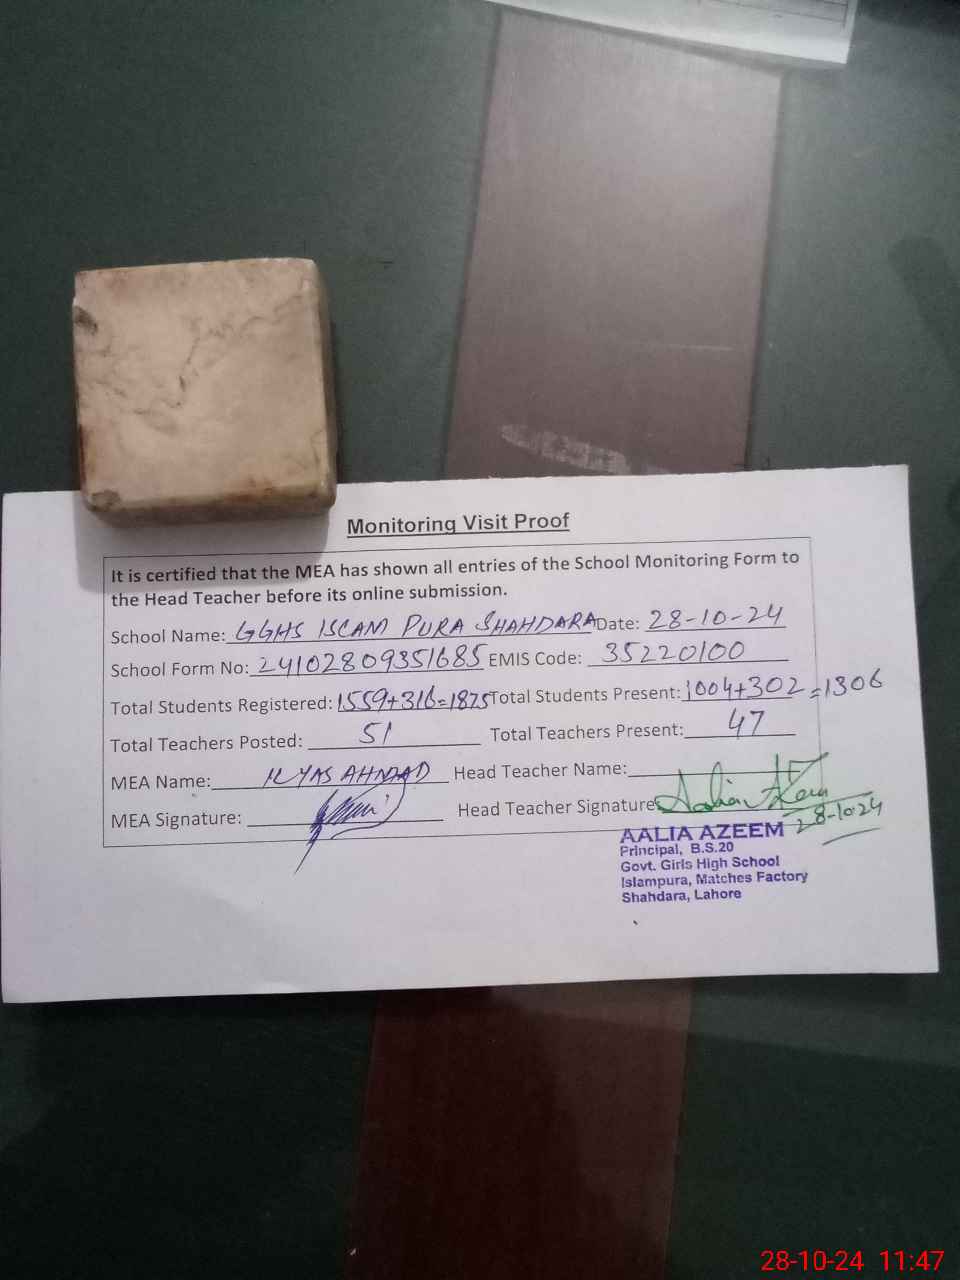 Monitoring Visit Proof
It is certified that the MEA has shown all entries of the School Monitoring Form to
the Head Teacher before its online submission.
School Name: GGHS ISLAM PURA SHAHDARA Date: 28-10-24
School Form No: 24102809351685 EMIS Code: 35220100
Total Students Registered: 1559+316=1875 Total Students Present: 1004+302=1306
Total Teachers Posted: 51 Total Teachers Present: 47
MEA Name: ILYAS AHMAD Head Teacher Name:
MEA Signature: Head Teacher Signature Aalia Azeem
28-10-24
AALIA AZEEM
Principal, B.S.20
Govt. Girls High School
Islampura, Matches Factory
Shahdara, Lahore
28-10-24 11:47